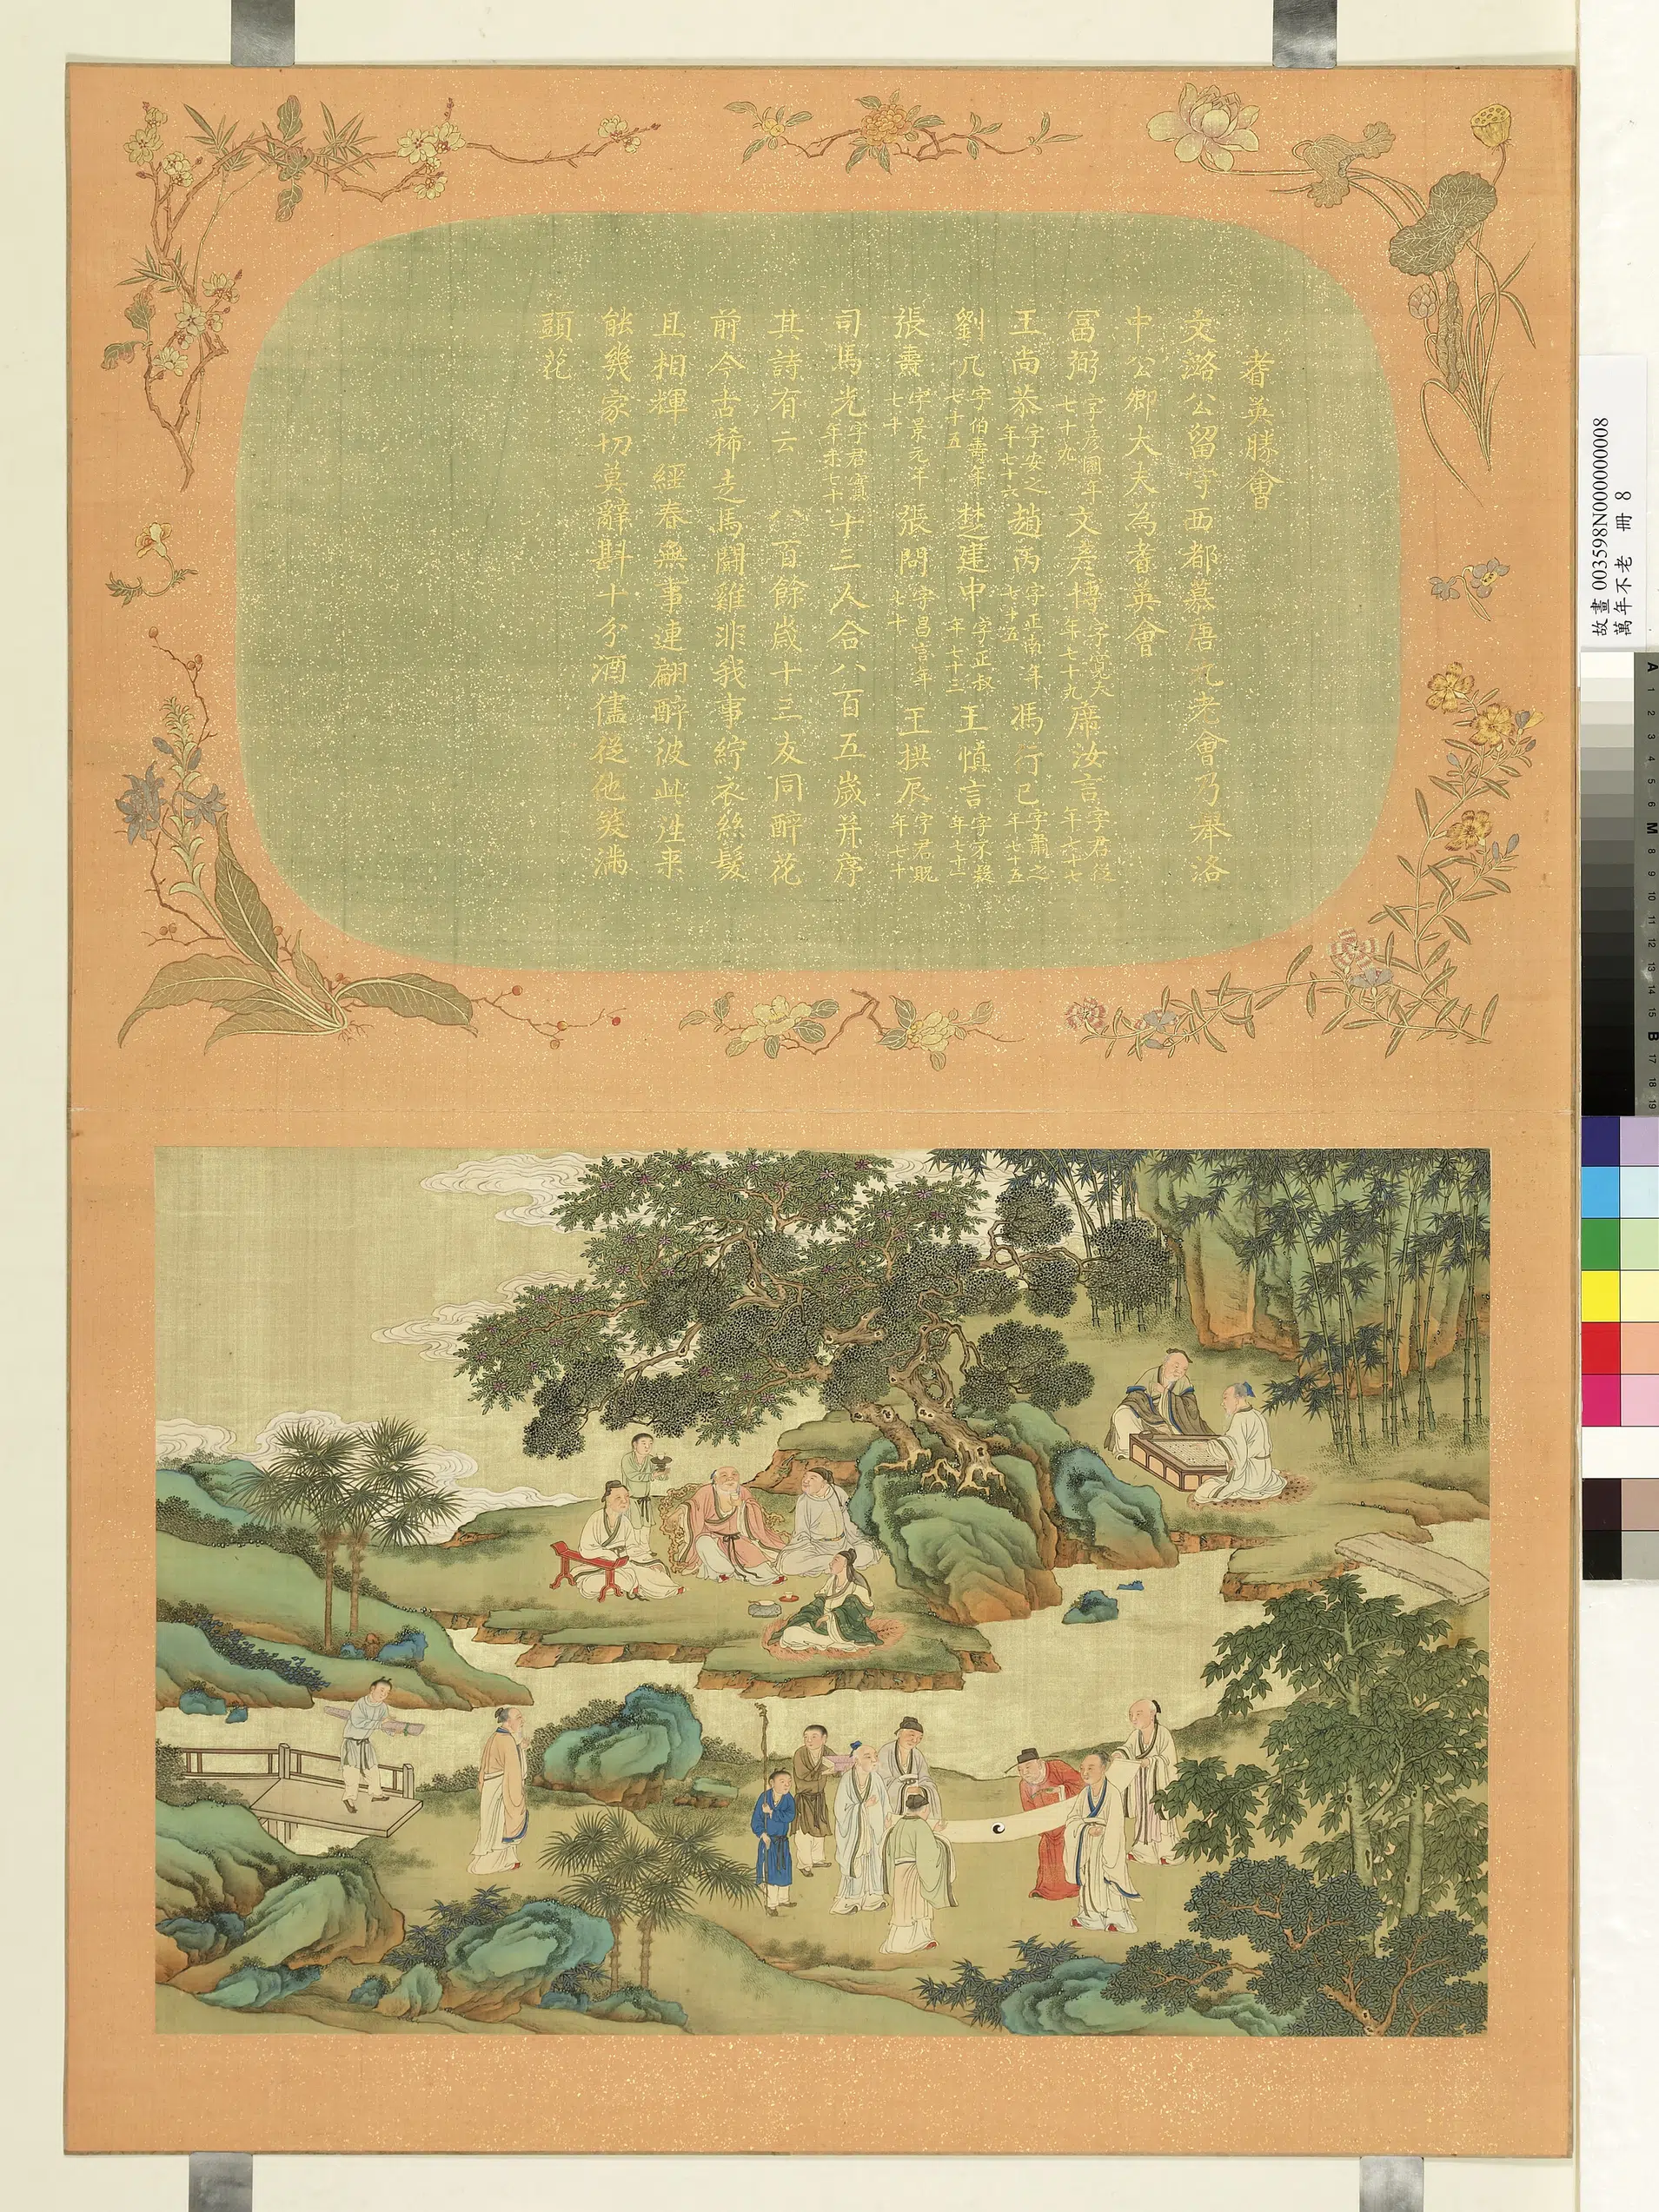 耆英勝會
文潞公留守西都慕唐九老會乃舉洛
中公卿大夫為耆英會
富弼字彥國年七十九文彥博字寬夫年七十九席汝言字君從年七十七
王尚恭字安之年七十六趙丙字正南年七十五馮行己字肅之年七十五
劉几字伯壽年七十五楚建中字正叔年七十三王慎言字不疑年七十二
張燾字景元年七十張問字昌言年七十王拱辰字君貺年七十
司馬光字君實年未七十十三人合八百五歲并序
其詩有云 八百餘歲十三友同醉花
前今古稀走馬鬪雞非我事紵衣絲髮
且相輝 經春無事連翩醉彼此往來
能幾家切莫辭斟十分酒儘從他笑滿
頭花
故畫 003598N000000008
萬年不老 冊 8
A 1 2 3 4 5 6 M 8 9 10 11 12 13 14 15 B 17 18 19